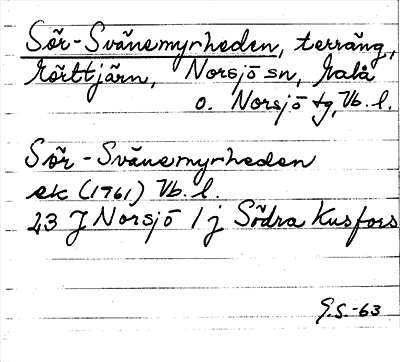 Sör-Svänsmyrheden, terräng,
Rörttjärn, Norsjö sn, Malå
o. Norsjö tg, Vb. l.
Sör-Svänsmyrheden
ek (1961) Vb. l.
23 J Norsjö 1 j Södra Kusfors
G.S.-63